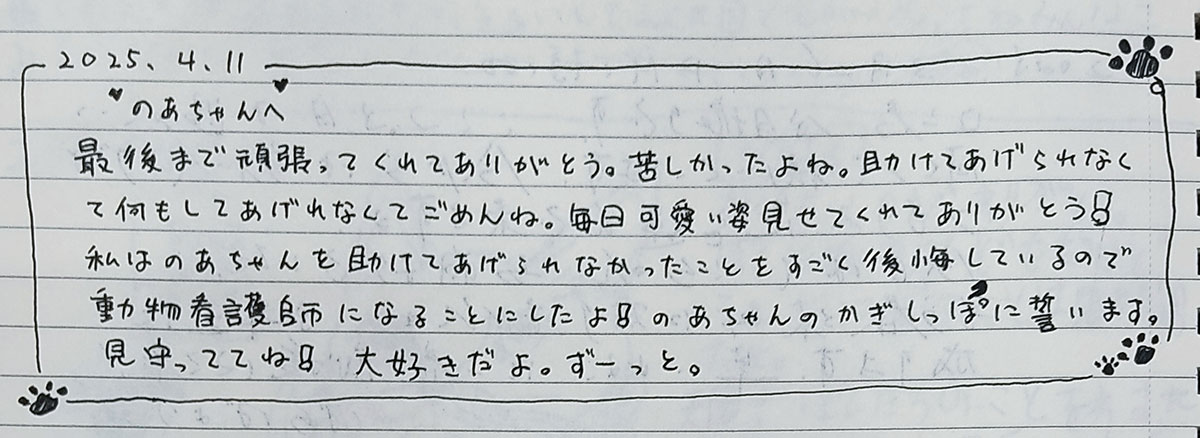 2025. 4. 11
のあちゃんへ
最後まで頑張ってくれてありがとう。苦しかったよね。助けてあげられなく
て何もしてあげれなくてごめんね。毎日可愛い姿見せてくれてありがとう!
私はのあちゃんを助けてあげられなかったことをすごく後悔しているので
動物看護師になることにしたよ!のあちゃんのかぎしっぽに誓います。
見守っててね! 大好きだよ。ずーっと。